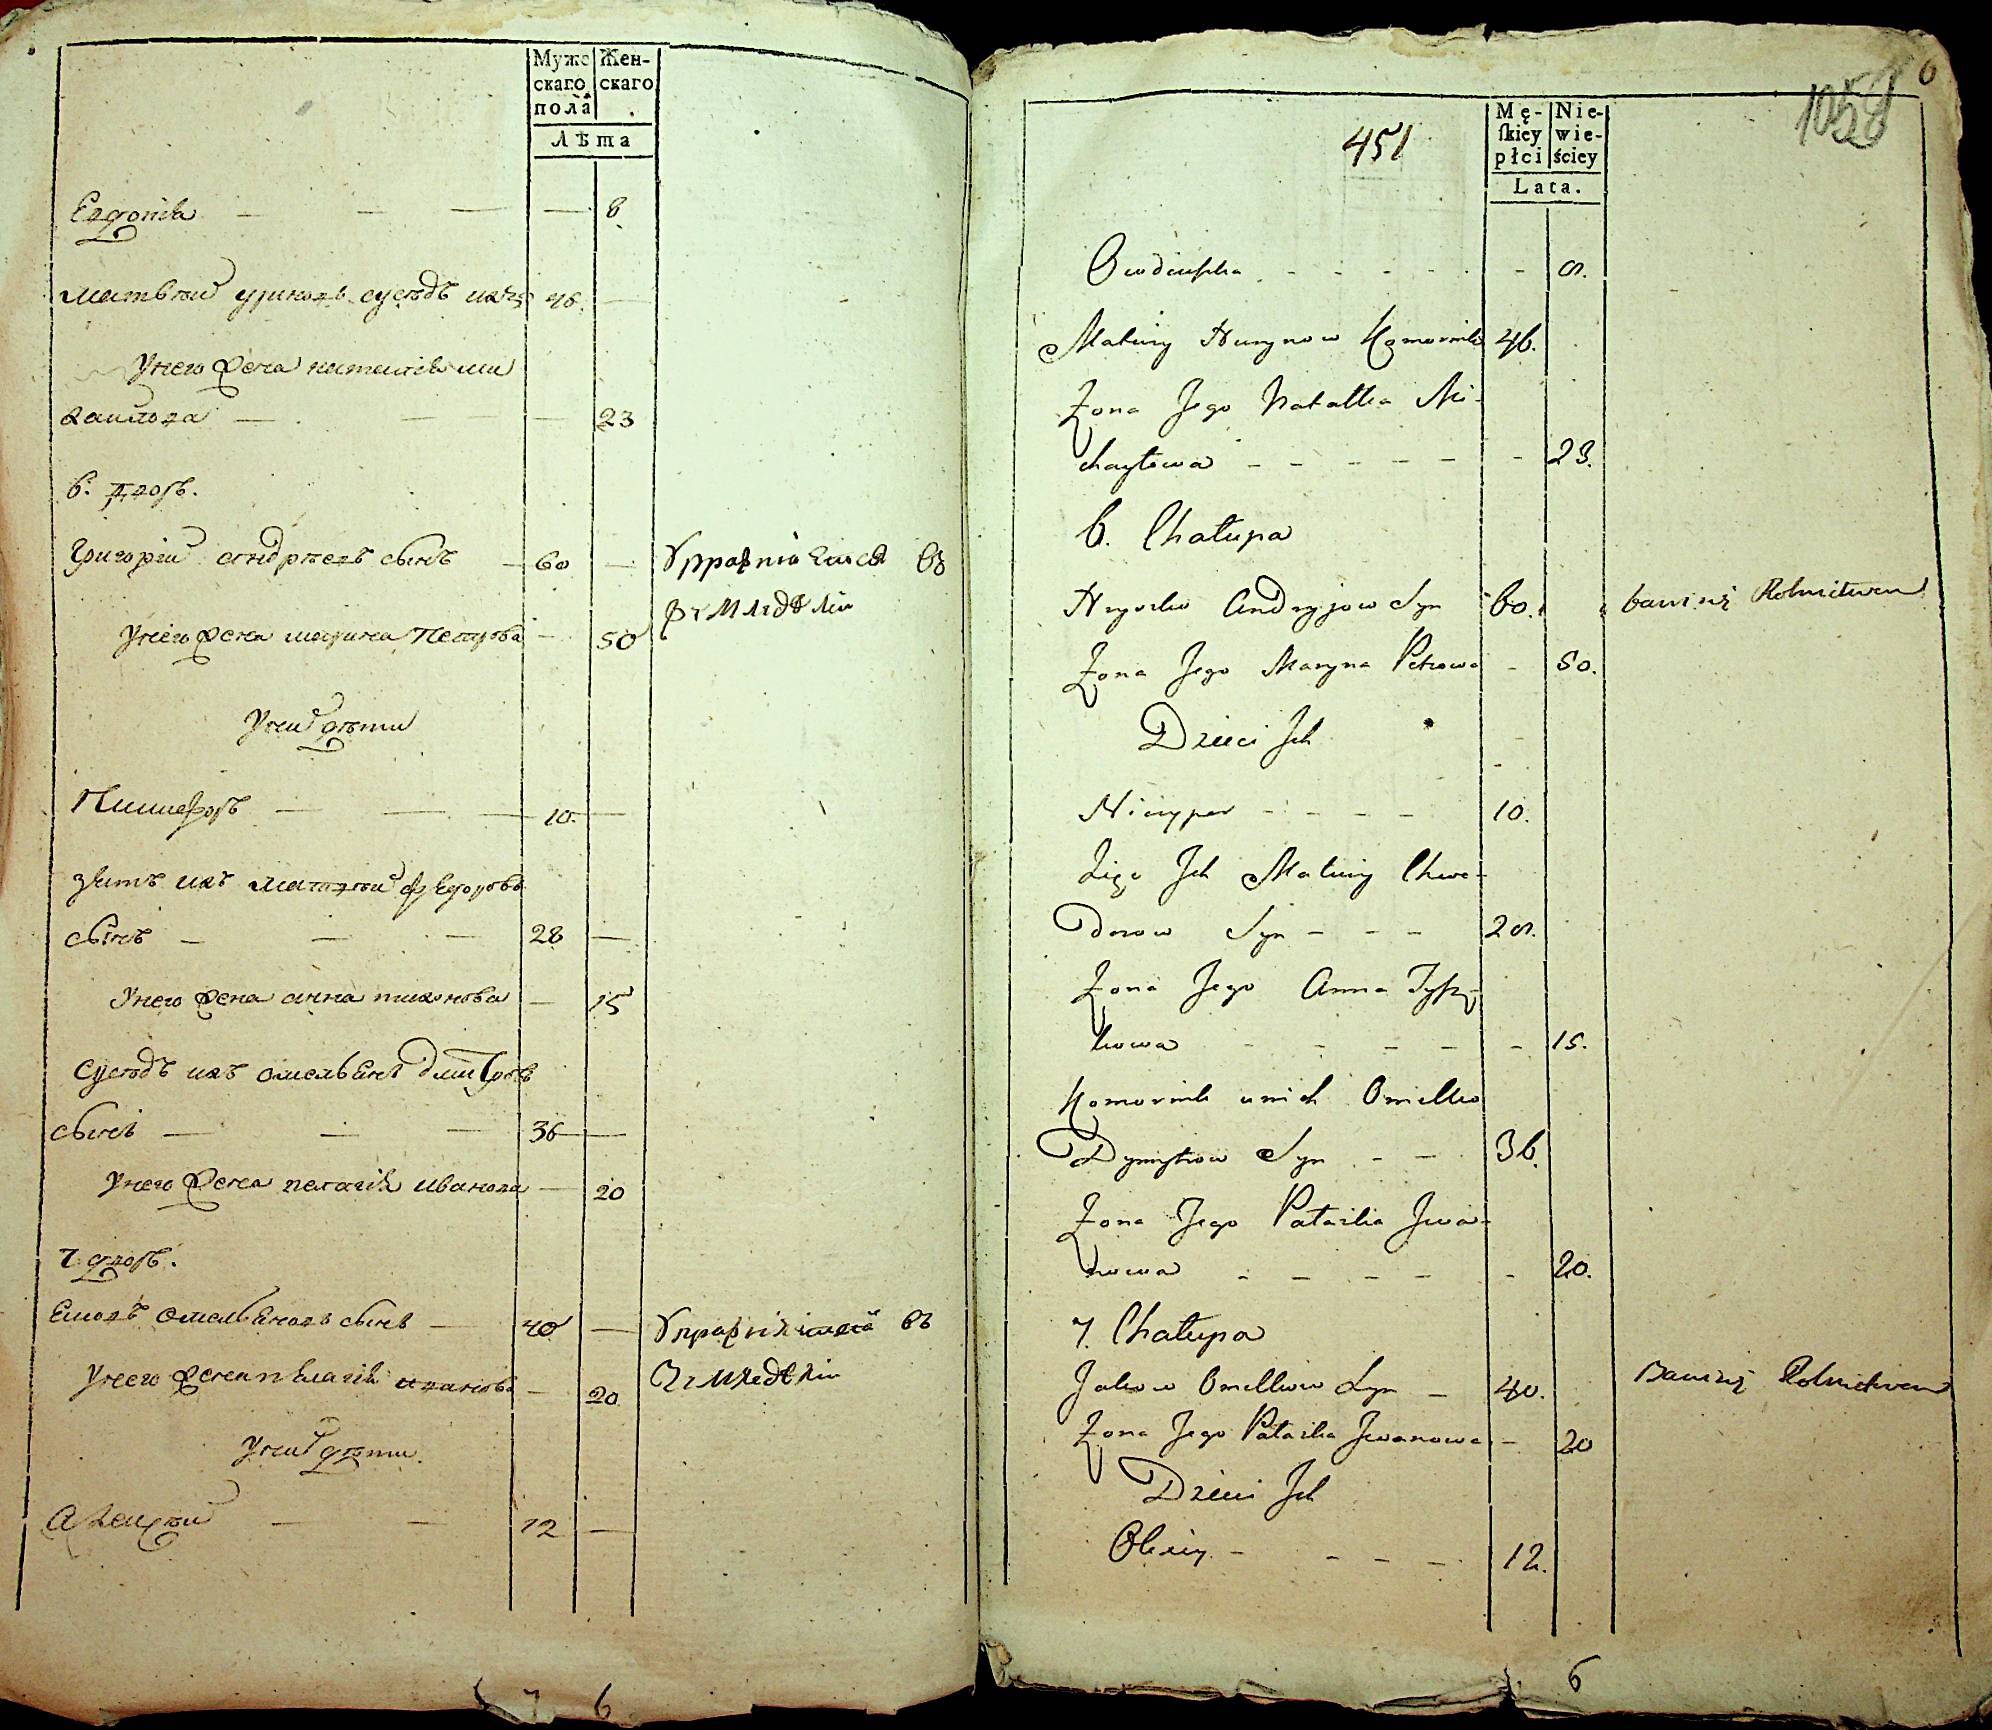 Мужс
скаго
пола
Жен-
скаго
Лѣта
Евдокіа — — — — 8
Матвѣй Уриновъ сусѣдъ ихъ 46. —
У него жена наталія ми
хаилова — — — 23
6. дворъ.
Григорій андрѣевъ сынъ — 60 — Упражняется въ
земледѣліи
У него жена марина Петрова — 50
У них дѣти
Ничипоръ — — — 10. —
зять ихъ матвѣй федоровъ
сынъ — — — 28 —
У него жена анна тихонова — 15
Сусѣдъ ихъ омельянъ дмитровъ
сынъ — — — 36 —
У него жена пелагія иванова — 20
7. дворъ.
Емельяновъ сынъ — 40 — Упражняется въ
земледѣліи
У него жена пелагія иванова — 20
У них дѣти.
Алексѣй — — 12 —
7 6
6
1058
451
Mę-
skiey
płci
Nie-
wie-
ściey
Lata.
Owdiuszka - - - - - - 8.
Matwiy Hurynow Komornik 46.
Żona Jego Natalka Mi-
chayłowa - - - - - - 23.
6. Chałupa
Hryćko Andryjow Syn 60. bawi się Rolnictwem
Żona Jego Maryna Petrowa - 50.
Dzieci Ich
Niczypor - - - - 10.
Zięć Ich Matwiy Chwe-
dorow Syn - - - 28.
Żona Jego Anna Tysz-
kowa - - - - - 15.
Komornik u nich Omelko
Dymytrow Syn - - 36.
Żona Jego Pałazka Iwa-
nowa - - - - - 20.
7. Chałupa
Jakow Omelkow Syn - 40. Bawi się Rolnictwem
Żona Jego Pałazka Iwanowa - 20
Dzieci Ich
Olexiy - - - - 12.
6